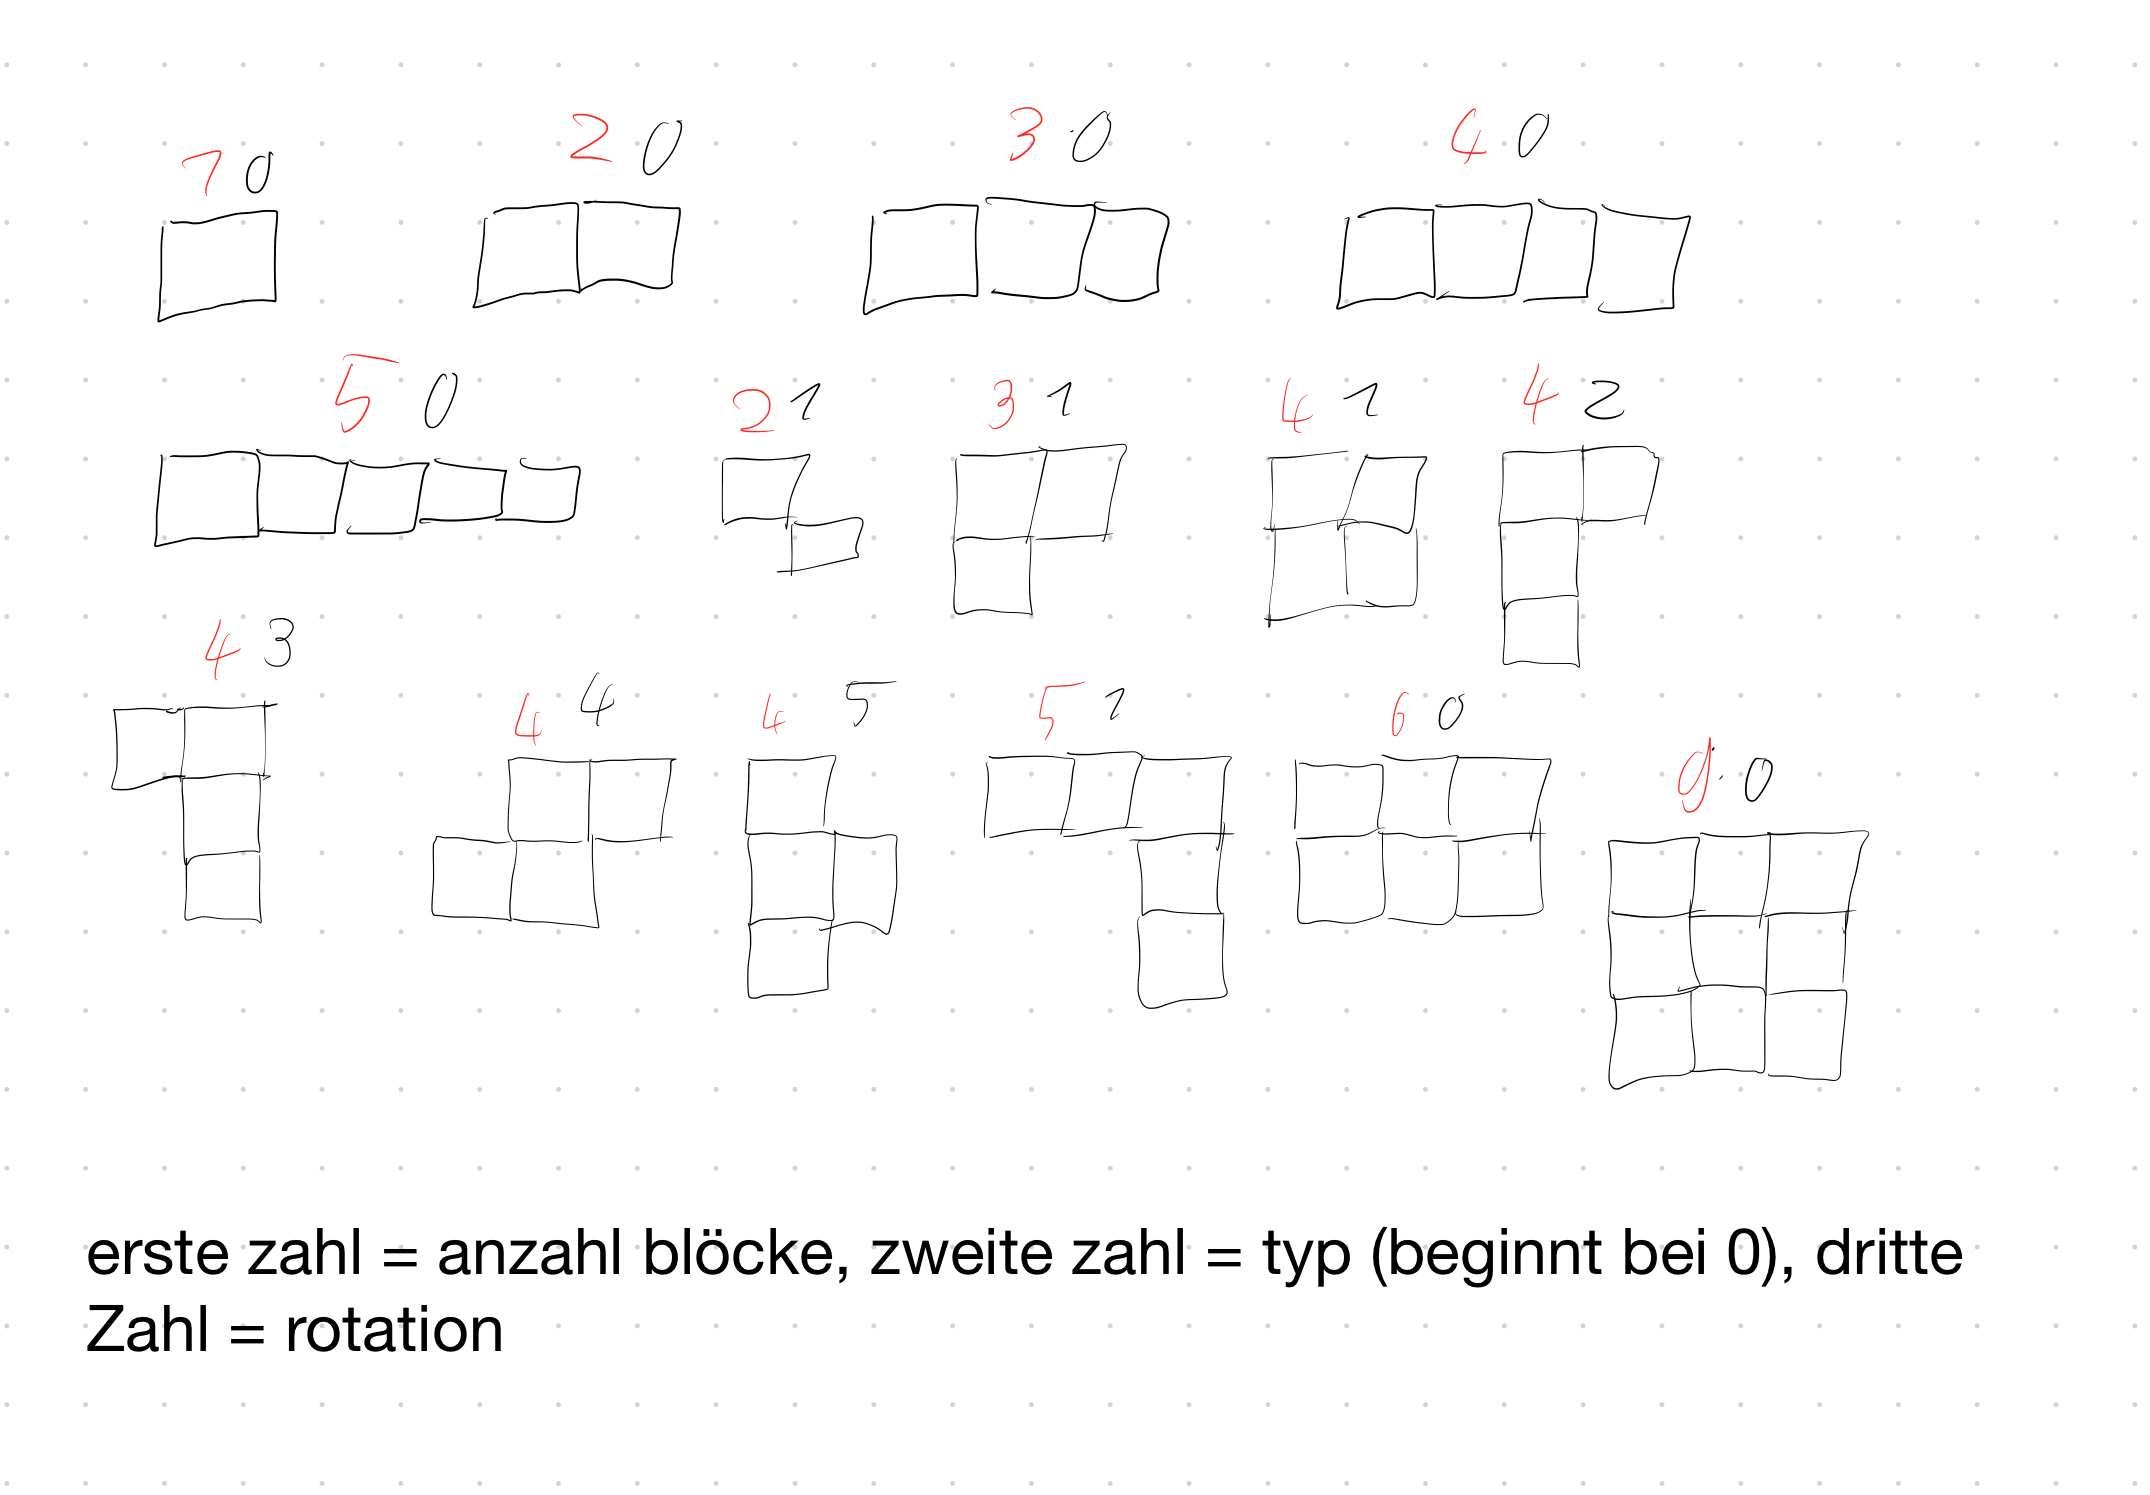 1 0
2 0
3 0
4 0
5 0
2 1
3 1
4 1
4 2
4 3
4 4
4 5
5 1
6 0
9 0
erste zahl = anzahl blöcke, zweite zahl = typ (beginnt bei 0), dritte
Zahl = rotation